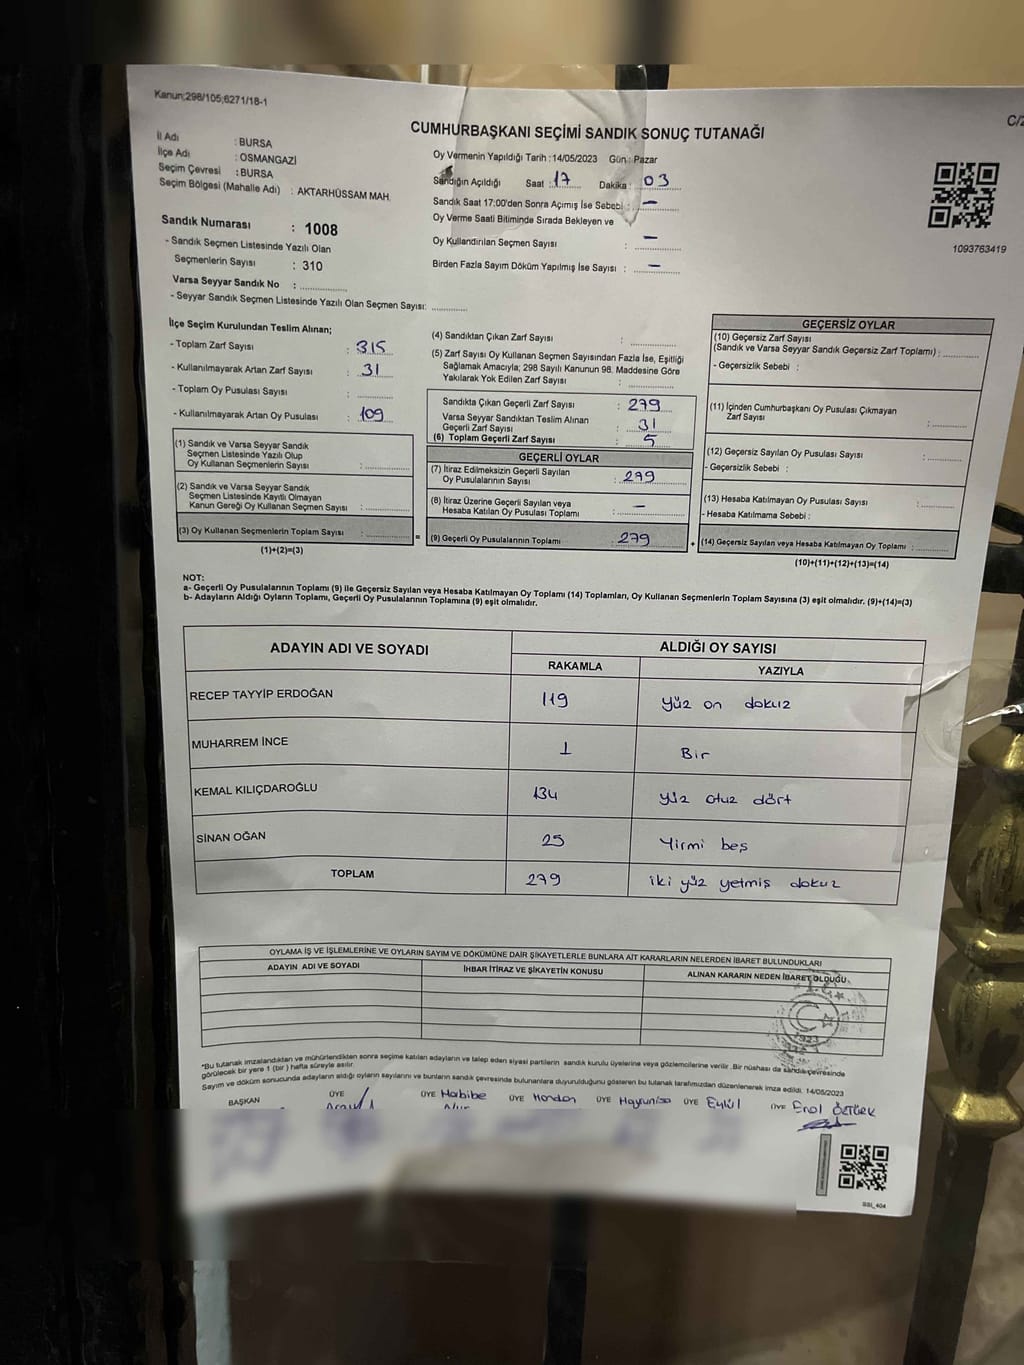 Kanun;298/105;6271/18-1
C/2
CUMHURBAŞKANI SEÇİMİ SANDIK SONUÇ TUTANAĞI
İl Adı : BURSA
İlçe Adı : OSMANGAZİ
Seçim Çevresi : BURSA
Seçim Bölgesi (Mahalle Adı) : AKTARHÜSSAM MAH.
Oy Vermenin Yapıldığı Tarih : 14/05/2023 Gün : Pazar
Sandığın Açıldığı Saat : 17 Dakika : 03
Sandık Saat 17:00'den Sonra Açımış İse Sebebi : —
Oy Verme Saati Bitiminde Sırada Bekleyen ve
Oy Kullandırılan Seçmen Sayısı : —
Birden Fazla Sayım Döküm Yapılmış İse Sayısı : —
1093763419
Sandık Numarası : 1008
- Sandık Seçmen Listesinde Yazılı Olan
Seçmenlerin Sayısı : 310
Varsa Seyyar Sandık No :
- Seyyar Sandık Seçmen Listesinde Yazılı Olan Seçmen Sayısı:
İlçe Seçim Kurulundan Teslim Alınan;
- Toplam Zarf Sayısı : 315
- Kullanılmayarak Artan Zarf Sayısı : 31
- Toplam Oy Pusulası Sayısı :
- Kullanılmayarak Artan Oy Pusulası : 109
(1) Sandık ve Varsa Seyyar Sandık
Seçmen Listesinde Yazılı Olup
Oy Kullanan Seçmenlerin Sayısı :
(2) Sandık ve Varsa Seyyar Sandık
Seçmen Listesinde Kayıtlı Olmayan
Kanun Gereği Oy Kullanan Seçmen Sayısı :
(3) Oy Kullanan Seçmenlerin Toplam Sayısı :
(1)+(2)=(3)
(4) Sandıktan Çıkan Zarf Sayısı :
(5) Zarf Sayısı Oy Kullanan Seçmen Sayısından Fazla İse, Eşitliği
Sağlamak Amacıyla; 298 Sayılı Kanunun 98. Maddesine Göre
Yakılarak Yok Edilen Zarf Sayısı :
Sandıkta Çıkan Geçerli Zarf Sayısı : 279
Varsa Seyyar Sandıktan Teslim Alınan
Geçerli Zarf Sayısı : 31
(6) Toplam Geçerli Zarf Sayısı : 5
GEÇERLİ OYLAR
(7) İtiraz Edilmeksizin Geçerli Sayılan
Oy Pusulalarının Sayısı : 279
(8) İtiraz Üzerine Geçerli Sayılan veya
Hesaba Katılan Oy Pusulası Toplamı : —
= (9) Geçerli Oy Pusulalarının Toplamı : 279
GEÇERSİZ OYLAR
(10) Geçersiz Zarf Sayısı
(Sandık ve Varsa Seyyar Sandık Geçersiz Zarf Toplamı) :
- Geçersizlik Sebebi :
(11) İçinden Cumhurbaşkanı Oy Pusulası Çıkmayan
Zarf Sayısı :
(12) Geçersiz Sayılan Oy Pusulası Sayısı :
- Geçersizlik Sebebi :
(13) Hesaba Katılmayan Oy Pusulası Sayısı :
- Hesaba Katılmama Sebebi :
+ (14) Geçersiz Sayılan veya Hesaba Katılmayan Oy Toplamı :
(10)+(11)+(12)+(13)=(14)
NOT:
a- Geçerli Oy Pusulalarının Toplamı (9) ile Geçersiz Sayılan veya Hesaba Katılmayan Oy Toplamı (14) Toplamları, Oy Kullanan Seçmenlerin Toplam Sayısına (3) eşit olmalıdır. (9)+(14)=(3)
b- Adayların Aldığı Oyların Toplamı, Geçerli Oy Pusulalarının Toplamına (9) eşit olmalıdır.
ADAYIN ADI VE SOYADI ALDIĞI OY SAYISI
RAKAMLA YAZIYLA
RECEP TAYYİP ERDOĞAN 119 Yüz on dokuz
MUHARREM İNCE 1 Bir
KEMAL KILIÇDAROĞLU 134 Yüz otuz dört
SİNAN OĞAN 25 Yirmi beş
TOPLAM 279 iki yüz yetmiş dokuz
OYLAMA İŞ VE İŞLEMLERİNE VE OYLARIN SAYIM VE DÖKÜMÜNE DAİR ŞİKAYETLERLE BUNLARA AİT KARARLARIN NELERDEN İBARET BULUNDUKLARI
ADAYIN ADI VE SOYADI İHBAR İTİRAZ VE ŞİKAYETİN KONUSU ALINAN KARARIN NEDEN İBARET OLDUĞU
*Bu tutanak imzalandıktan ve mühürlendikten sonra seçime katılan adayların ve talep eden siyasi partilerin sandık kurulu üyelerine veya gözlemcilerine verilir. Bir nüshası da sandık çevresinde
görülecek bir yere 1 (bir) hafta süreyle asılır.
Sayım ve döküm sonucunda adayların aldığı oyların sayılarını ve bunların sandık çevresinde bulunanlara duyurulduğunu gösteren bu tutanak tarafımızdan düzenlenerek imza edildi. 14/05/2023
BAŞKAN ÜYE ÜYE Habibe ÜYE ÜYE Hayrunisa ÜYE Eylül ÜYE Erol ÖZTÜRK
SSI_404